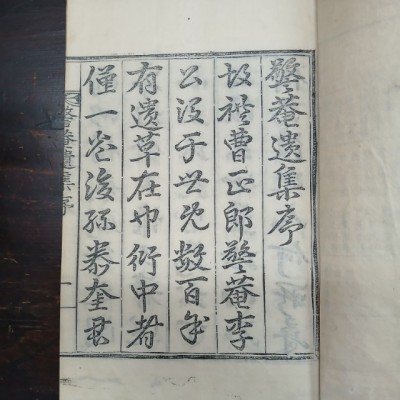 警菴遺集序
故禮曹正郎警菴李
公沒于世既數百年
有遺草在巾衍中者
僅一卷後孫泰奎君
警菴遺集序 一